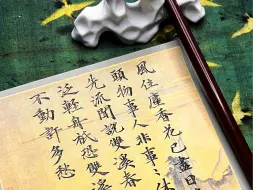 風住塵香花已盡日
頭物是人非事〻休
先流聞說雙溪春
泛輕舟祇恐雙溪
不動許多愁